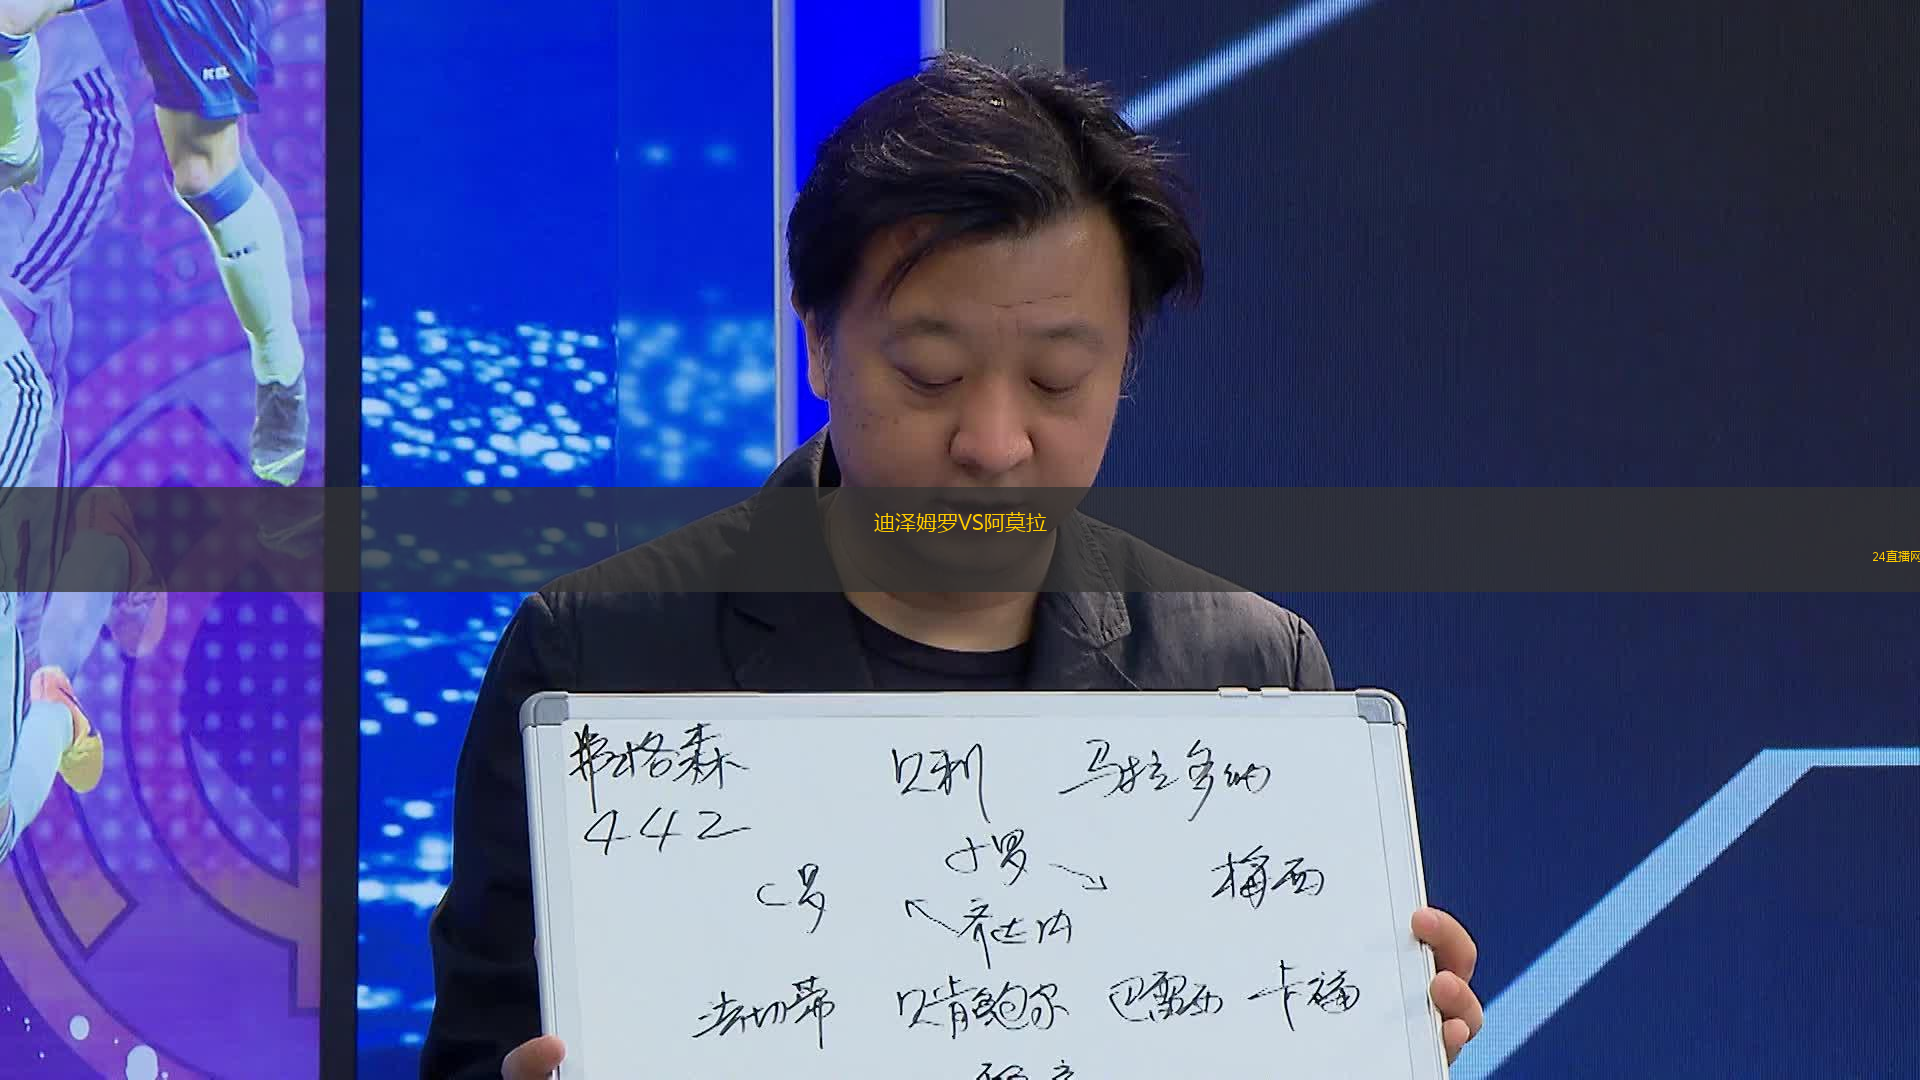 迪泽姆罗VS阿莫拉
24直播网
弗格森 贝利 马拉多纳
442
小罗
C罗 梅西
齐达内
法切蒂 贝肯鲍尔 巴雷西 卡福